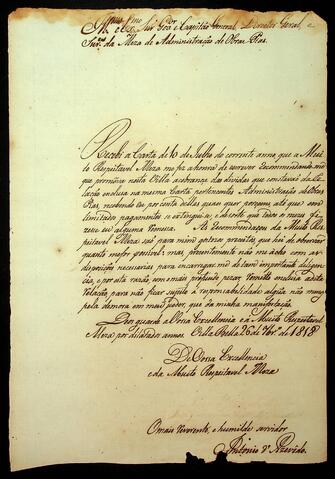 Illmo e Exmo Snr Govor e Capitão General, Director Geral, e
Snrs da Meza de Administração de Obras Pias.
Recebi a Carta de 10 de Julho do corrente anno, que a Mui-
to Respeitavel Meza me fez a honra de escrever recommendando-me
que promova nesta Villa a cobrança das dividas que constavão da Re-
lação incluza na mesma Carta pertencentes Administração de Obras
Pias, recebendo eu por conta dellas quaes quer porçoens até que com
limitado pagamentos se extinguão; e de sorte que todos os mezes fi-
zesse eu alguma remessa. As Recommendaçoens da Muito Res-
peitavel Meza são para mim outros preceitos que hei de observar
quanto me for possivel: mas prezentemente não me acho com as
dispoziçoens necessarias para encarregar-me de tam importante diligen-
cia, e por esta razão, com o mais profundo pezar remetto incluza a dita
Relação, para não ficar sujeito á responsabilidade alguma não
pela demora em meu poder, que da minha manifestação.
Deos guarde a Vossa Excellencia e a Muito Respeitavel
Meza por dilatados annos. Villa Bella 26 de 7bro de 1818
De Vossa Excellencia
e da Muito Respeitavel Meza
O mais reverente, e humilde servidor
Antonio d' Azevedo